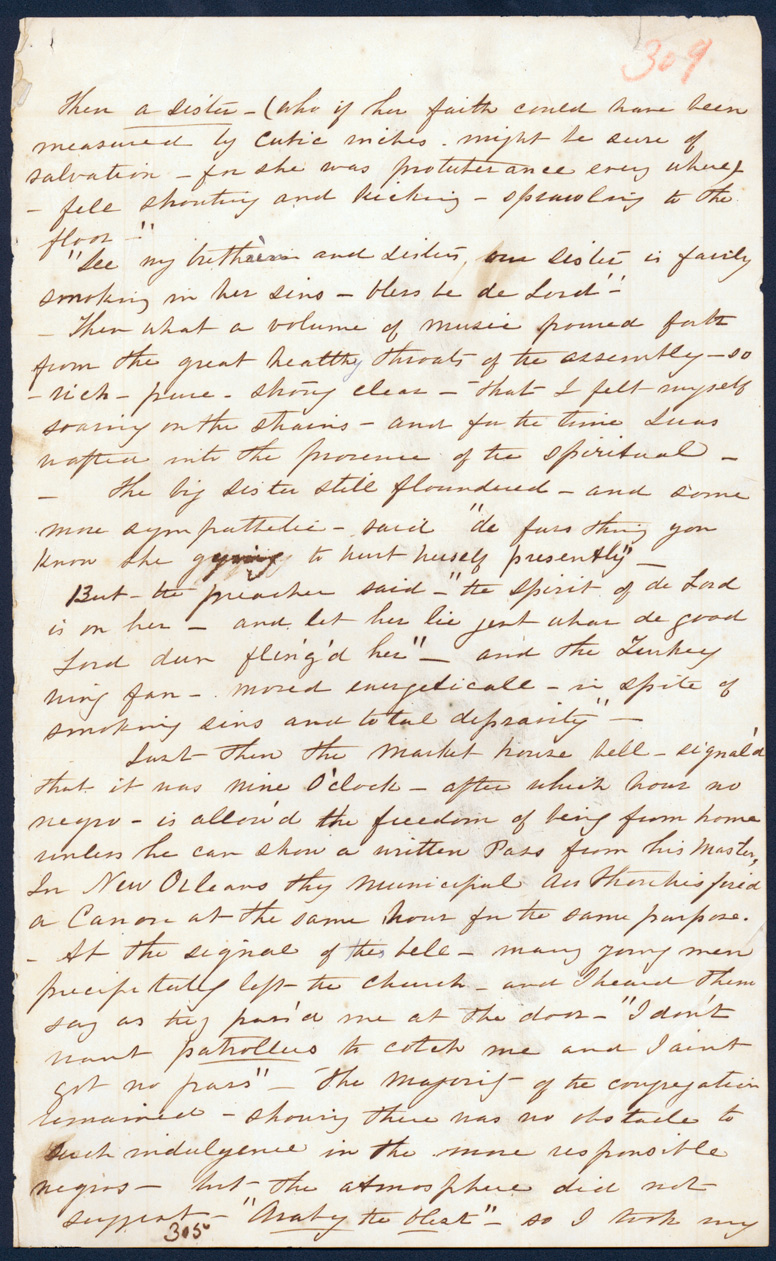 309
Then a sister - (who if her faith could have been
measured by cubic inches. might be sure of
salvation - for she was protuberance every where)
- fell shouting and kicking - sprawling to the
floor -"
"See my bretherin and sisters, our sister is fairly
smoking in her sins - bless be de Lord"!
- Then what a volume of music poured forth
from the great healthy throats of the assembly - so
- rich - pure - strong clear - that I felt myself
soaring on the strains - and for the time I was
wafted into the presence of the spiritual -
- The big sister still floundered - and some
more sympathetic - said "de furs thing you
know she gying to hurt herself presently" -
But - the preacher said - "the spirit of de Lord
is on her - and let her lie jest whar de good
Lord dun fling'd her" - and the Turkey
wing fan - moved energeticall - in spite of
smoking sins and total depravity" -
Just then the market house bell - signal'd
that it was nine O'clock - after which hour no
negro - is allow'd the freedom of being from home
unless he can show a written Pass from his Master,
In New Orleans they municipal fired
a Canon at the same hour for the same purpose.
- At the signal of the bell - many young men
precipitately left the church - and I heard them
say as they pass'd me at the door - "I don't
want patrollers to cotch me and I aint
got no pass" - The majority of the congregation
remained - showing there was no obstacle to
such indulgence in the more responsible
negros - but the atmosphere did not
suggest - "Araby the blest" - so I took my
305